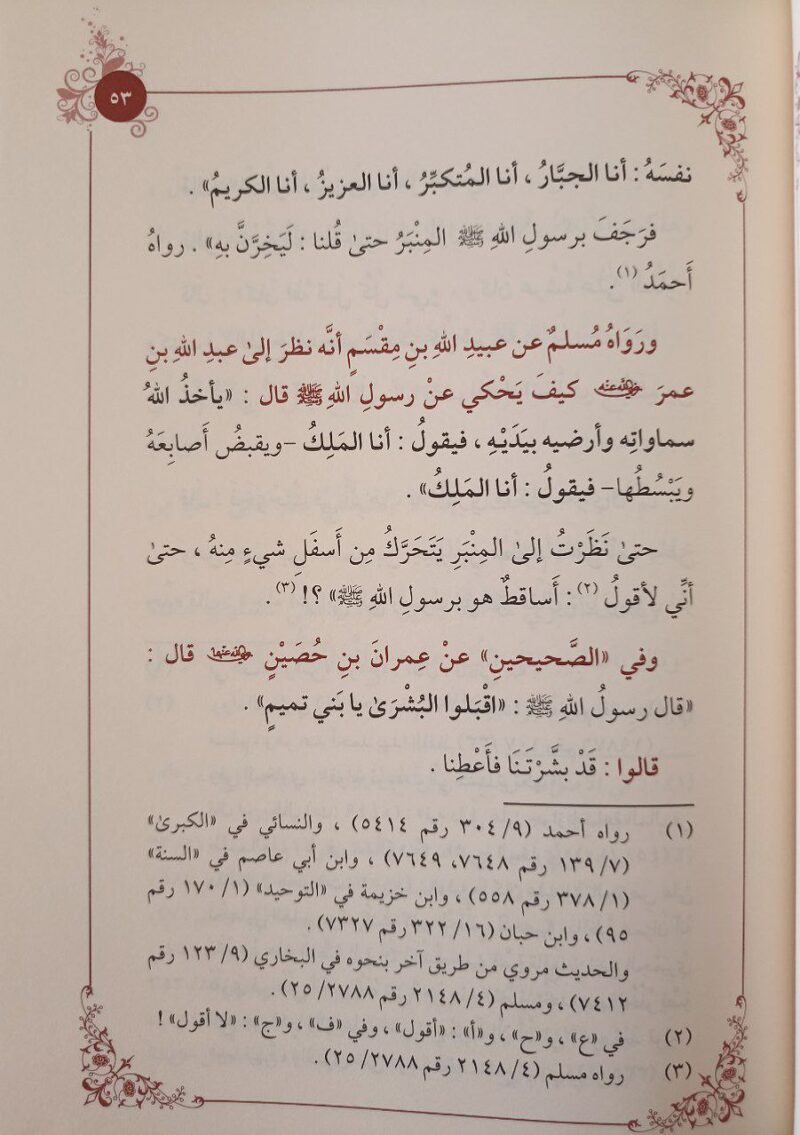 ٥٣
نفسَهُ : أنا الجبَّارُ ، أنا المُتكبِّرُ ، أنا العزيزُ ، أنا الكريمُ» .
فرَجَفَ برسولِ اللهِ ﷺ المِنْبَرُ حتىٰ قُلنا : لَيَخِرَّنَّ بهِ» . رواهُ
أَحمَدُ (١).
ورَوَاهُ مُسلمٌ عن عبيدِ اللهِ بنِ مِقْسَمٍ أنَّه نظرَ إلىٰ عبدِ اللهِ بنِ
عمرَ رضي الله عنه كيفَ يَحْكي عنْ رسولِ اللهِ ﷺ قال : «يأخذُ اللهُ
سماواتِه وأرضيه بيَدَيْهِ ، فيقولُ : أنا المَلِكُ –ويقبضُ أَصابِعَهُ
ويَبْسُطُها– فيقولُ : أنا المَلِكُ» .
حتىٰ نَظَرْتُ إلىٰ المِنْبَرِ يَتَحَرَّكُ مِن أَسفَلِ شيءٍ مِنهُ ، حتىٰ
أنِّي لأقولُ (٢) : أَساقطٌ هو برسولِ اللهِ ﷺ» ؟! (٣) .
وفي «الصَّحيحينِ» عنْ عِمرانَ بنِ حُصَيْنٍ رضي الله عنهما قال :
«قال رسولُ اللهِ ﷺ : «اقْبَلوا البُشْرَىٰ يا بَني تميمٍ» .
قالوا : قَدْ بشَّرْتَنَا فأَعْطِنا .
(١) رواه أحمد (٩/ ٣٠٤ رقم ٥٤١٤) ، والنسائي في «الكبرىٰ»
(٧/ ١٣٩ رقم ٧٦٤٨، ٧٦٤٩) ، وابن أبي عاصم في «السنة»
(١/ ٣٧٨ رقم ٥٥٨) ، وابن خزيمة في «التوحيد» (١/ ١٧٠ رقم
٩٥) ، وابن حبان (١٦/ ٣٢٢ رقم ٧٣٢٧) .
والحديث مروي من طريق آخر بنحوه في البخاري (٩/ ١٢٣ رقم
٧٤١٢) ، ومسلم (٤/ ٢١٤٨ رقم ٢٧٨٨/ ٢٥) .
(٢) في «ع» ، و«ح» ، و«أ» : «أقول» ، وفي «ف» ، و«ج» : «لا أقول» !
(٣) رواه مسلم (٤/ ٢١٤٨ رقم ٢٧٨٨/ ٢٥) .